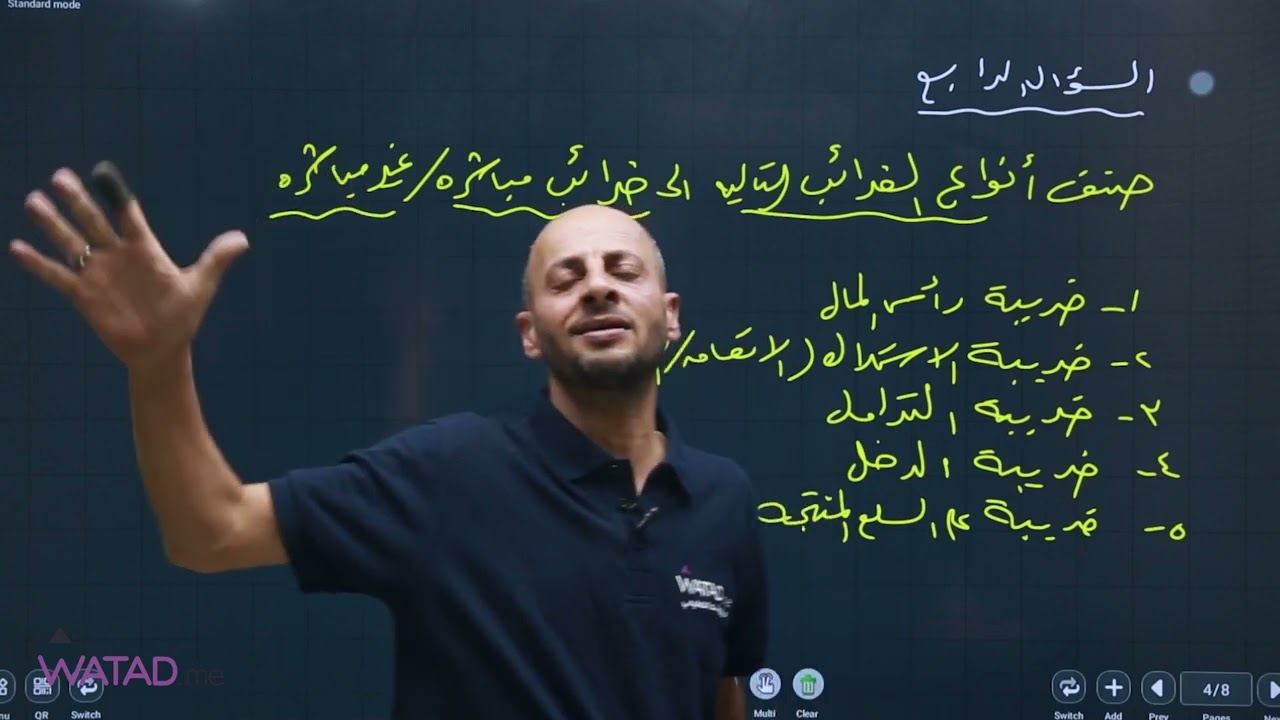 Standard mode
السؤال الرابع
صنف أنواع الضرائب التاليه الى ضرائب مباشره/غير مباشره
١- ضريبة رأس المال
٢- ضريبة الاستهلاك (الانتقائيه/
٣- ضريبة التكافل
٤- ضريبة الدخل
٥- ضريبة على السلع المنتجه
WATAD
WATAD.me
QR
Switch
Multi
Clear
Switch
Add
Prev
4/8
Pages